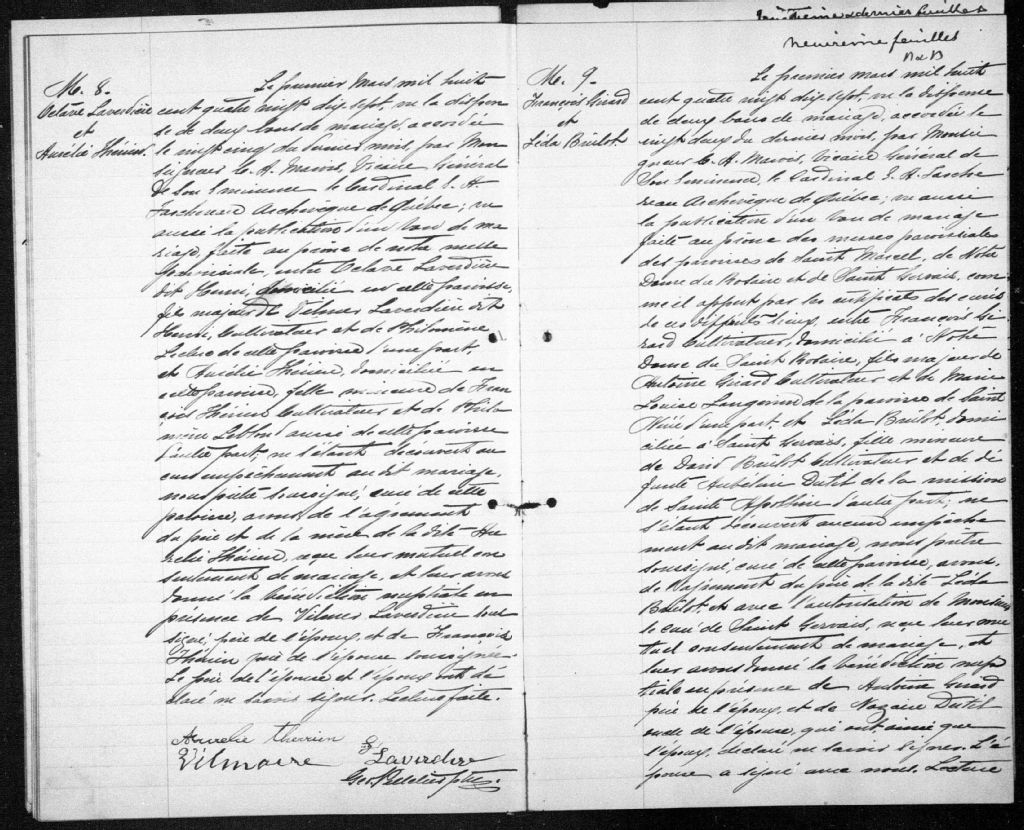 M. 8.
Octave Laverdière
et
Aurélie Thérien.
Le premier Mars mil huit
cent quatre vingt dix sept, vu la dispen
se de deux bans de mariage, accordée
le vingt cinq du dernier mois, par Mon
seigneur C. A. Marois, Vicaire Général
de Son Eminence le Cardinal E. A.
Taschereau Archevêque de Québec; vu
aussi la publication d'un ban de ma
riage, faite au prône de notre messe
paroissiale, entre Octave Laverdière
dit Henri, domicilié en cette paroisse,
fils majeur de Vilmer Laverdière dit
Henri, Cultivateur et de Philomène
Leclerc de cette paroisse d'une part,
et Aurélie Thérien, domiciliée en
cette paroisse, fille mineure de Fran
çois Thérien Cultivateur et de Philo
mène aussi de cette paroisse
d'autre part, ne s'étant découvert au
cun empêchement au dit mariage,
nous prêtre soussigné, curé de cette
paroisse, avons, de l'agrément
du père et de la mère de la dite Au
rélie Thérien, reçu leur mutuel con
sentement de mariage, et leur avons
donné la bénédiction nuptiale en
présence de Vilmer Laverdière sous
signé, père de l'époux, et de François
Thérien père de l'épouse soussignée.
Le père de l'épouse et l'époux ont dé
claré ne savoir signer. Lecture faite.
Aurelie Therrien
Vilmaire Laverdere
Geo. Pelletier ptre.
dernier feuillet
neuvième feuillet
M. 9.
François Girard
et
Léda Builot.
Le premier mars mil huit
cent quatre vingt dix sept, vu la dispense
de deux bans de mariage, accordée le
vingt deux du dernier mois, par Monsei
gneur C. A. Marois, Vicaire Général de
Son Eminence, le Cardinal E. A. Tasche
reau Archevêque de Québec; vu aussi
la publication d'un ban de mariage
faite au prône des messes paroissiales
des paroisses de Saint Marcel, de Notre
Dame du Rosaire et de Saint Gervais, com
me il appert par les certificats des curés
de ces différents lieux, entre François Gi
rard Cultivateur, domicilié à Notre
Dame du Saint Rosaire, fils majeur de
Antoine Girard Cultivateur et de Marie
Louise Langevin de la paroisse de Saint
d'une part, et Léda Builot, domi
ciliée à Saint Gervais, fille mineure
de David Builot Cultivateur et de dé
funte Dutil de la mission
de Sainte Apolline d'autre part; ne
s'étant découvert aucun empêche
ment au dit mariage, nous prêtre
soussigné, curé de cette paroisse, avons,
de l'agrément du père de la dite Léda
Builot et avec l'autorisation de Monsieur
le curé de Saint Gervais, reçu leur mu
tuel consentement de mariage, et
leur avons donné la bénédiction nup
tiale en présence de Antoine Girard
père de l'époux, et de Nazaire Dutil
oncle de l'épouse, qui ont, ainsi que
l'époux, déclaré ne savoir signer. L'é
pouse a signé avec nous. Lecture